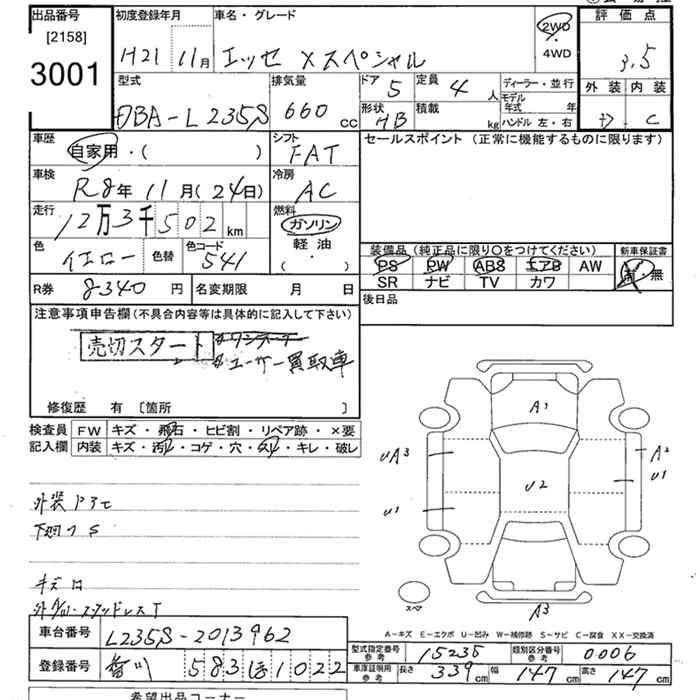 出品番号
[2158]
3001
初度登録年月
H21 11月
車名・グレード
エッセ Xスペシャル
2WD
・
4WD
評価点
3.5
外装 内装
C
型式
DBA-L235S
排気量
660 cc
ドア 5
定員 4 人
形状 HB
積載 kg
ディーラー・並行
モデル年式 年
ハンドル 左・右
車歴
自家用・( )
シフト
FAT
セールスポイント (正常に機能するものに限ります)
車検
R8年 11月(24日)
冷房
AC
走行
12万3千502km
燃料
ガソリン
軽油
( ・ )
色
イエロー
色替
色コード
541
装備品 (純正品に限り〇をつけてください)
新車保証書
PS PW ABS エアB AW
SR ナビ TV カワ
有・無
R券 8340円
名変期限 月 日
後日品
注意事項申告欄(不具合内容等は具体的に記入して下さい)
売切スタート
#ユーザー買取車
修復歴 有 〔箇所 〕
検査員 FW キズ・飛石・ヒビ割・リペア跡・×要
記入欄 内装 キズ・汚レ・コゲ・穴・スレ・キレ・破レ
A1
UA3
A2
U1
U2
U1
A3
スペア
外装
下廻り S
キズ
スタッドレスT
A-キズ E-エクボ U-凹み W-補修跡 S-サビ C-腐食 XX-交換済
車台番号 L235S-2013962
登録番号 香川 583 ほ 1022
型式指定番号 参考 15235
類別区分番号 参考 0006
車庫証明用 参考 長さ 339cm 幅 147cm 高さ 147cm
希望出品コーナー